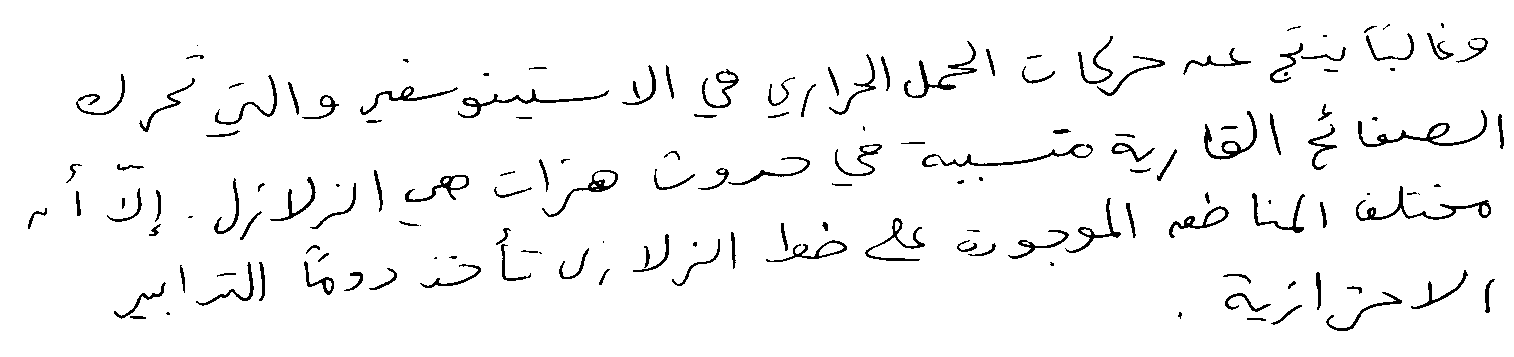 وغالبًا ينتج عن حركات الحمل الحراري في الاستينوسفير والتي تحرك
الصفائح القارية متسببة في حدوث هزات هي الزلازل. إلّا أن
مختلف المناطق الموجودة على خط الزلازل تأخذ دومًا التدابير
الاحترازية .